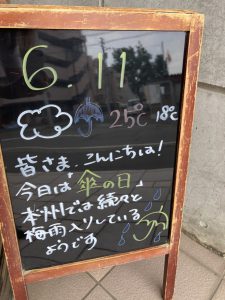 6.11
25℃ 18℃
皆さま、こんにちは!
今日は「傘の日」
本州では続々と
梅雨入りしている
ようです